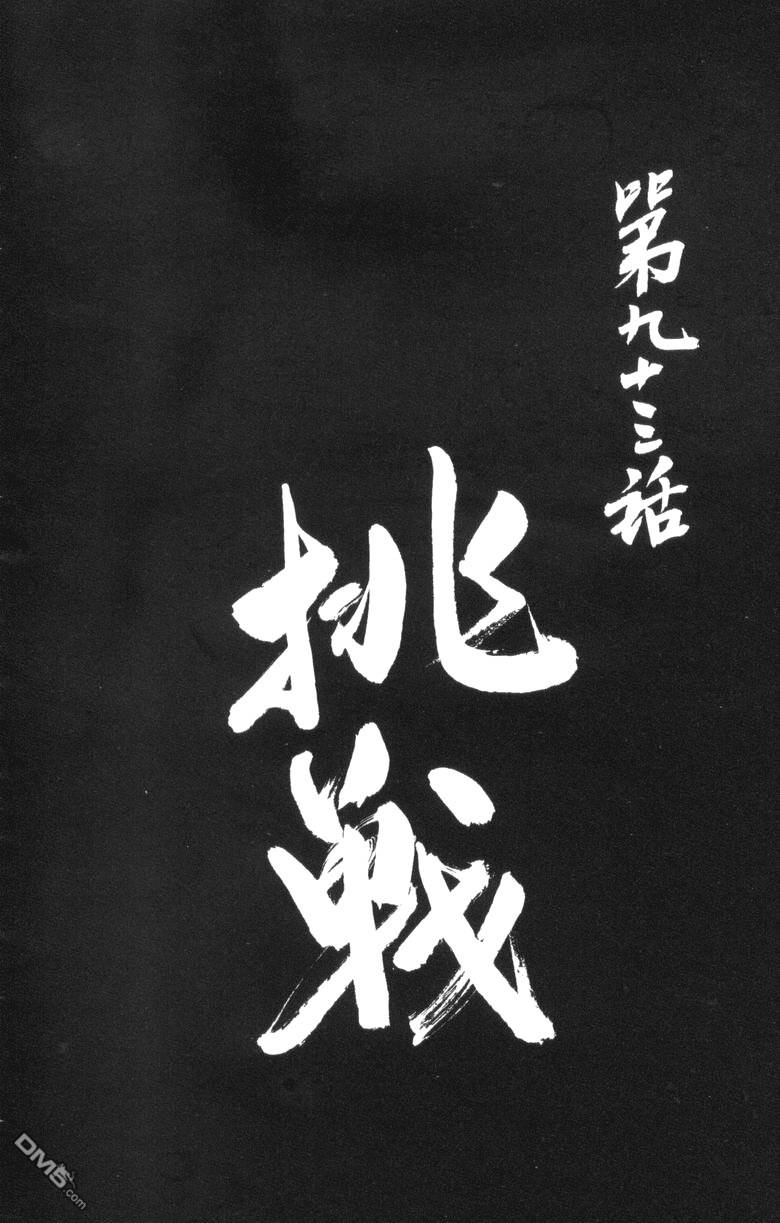 第九十三話
挑戦
DM5.com